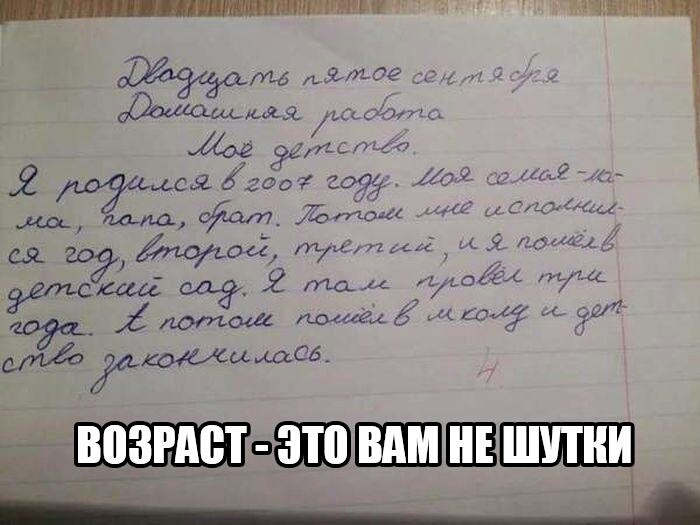 Двадцать пятое сентября
Домашняя работа
Моё детство.
Я родился в 2007 году. Моя семья - ма-
ма, папа, брат. Потом мне исполнил-
ся год, второй, третий, и я пошёл в
детский сад. Я там провёл три
года. А потом пошёл в школу и дет-
ство закончилась.
4
ВОЗРАСТ - ЭТО ВАМ НЕ ШУТКИ